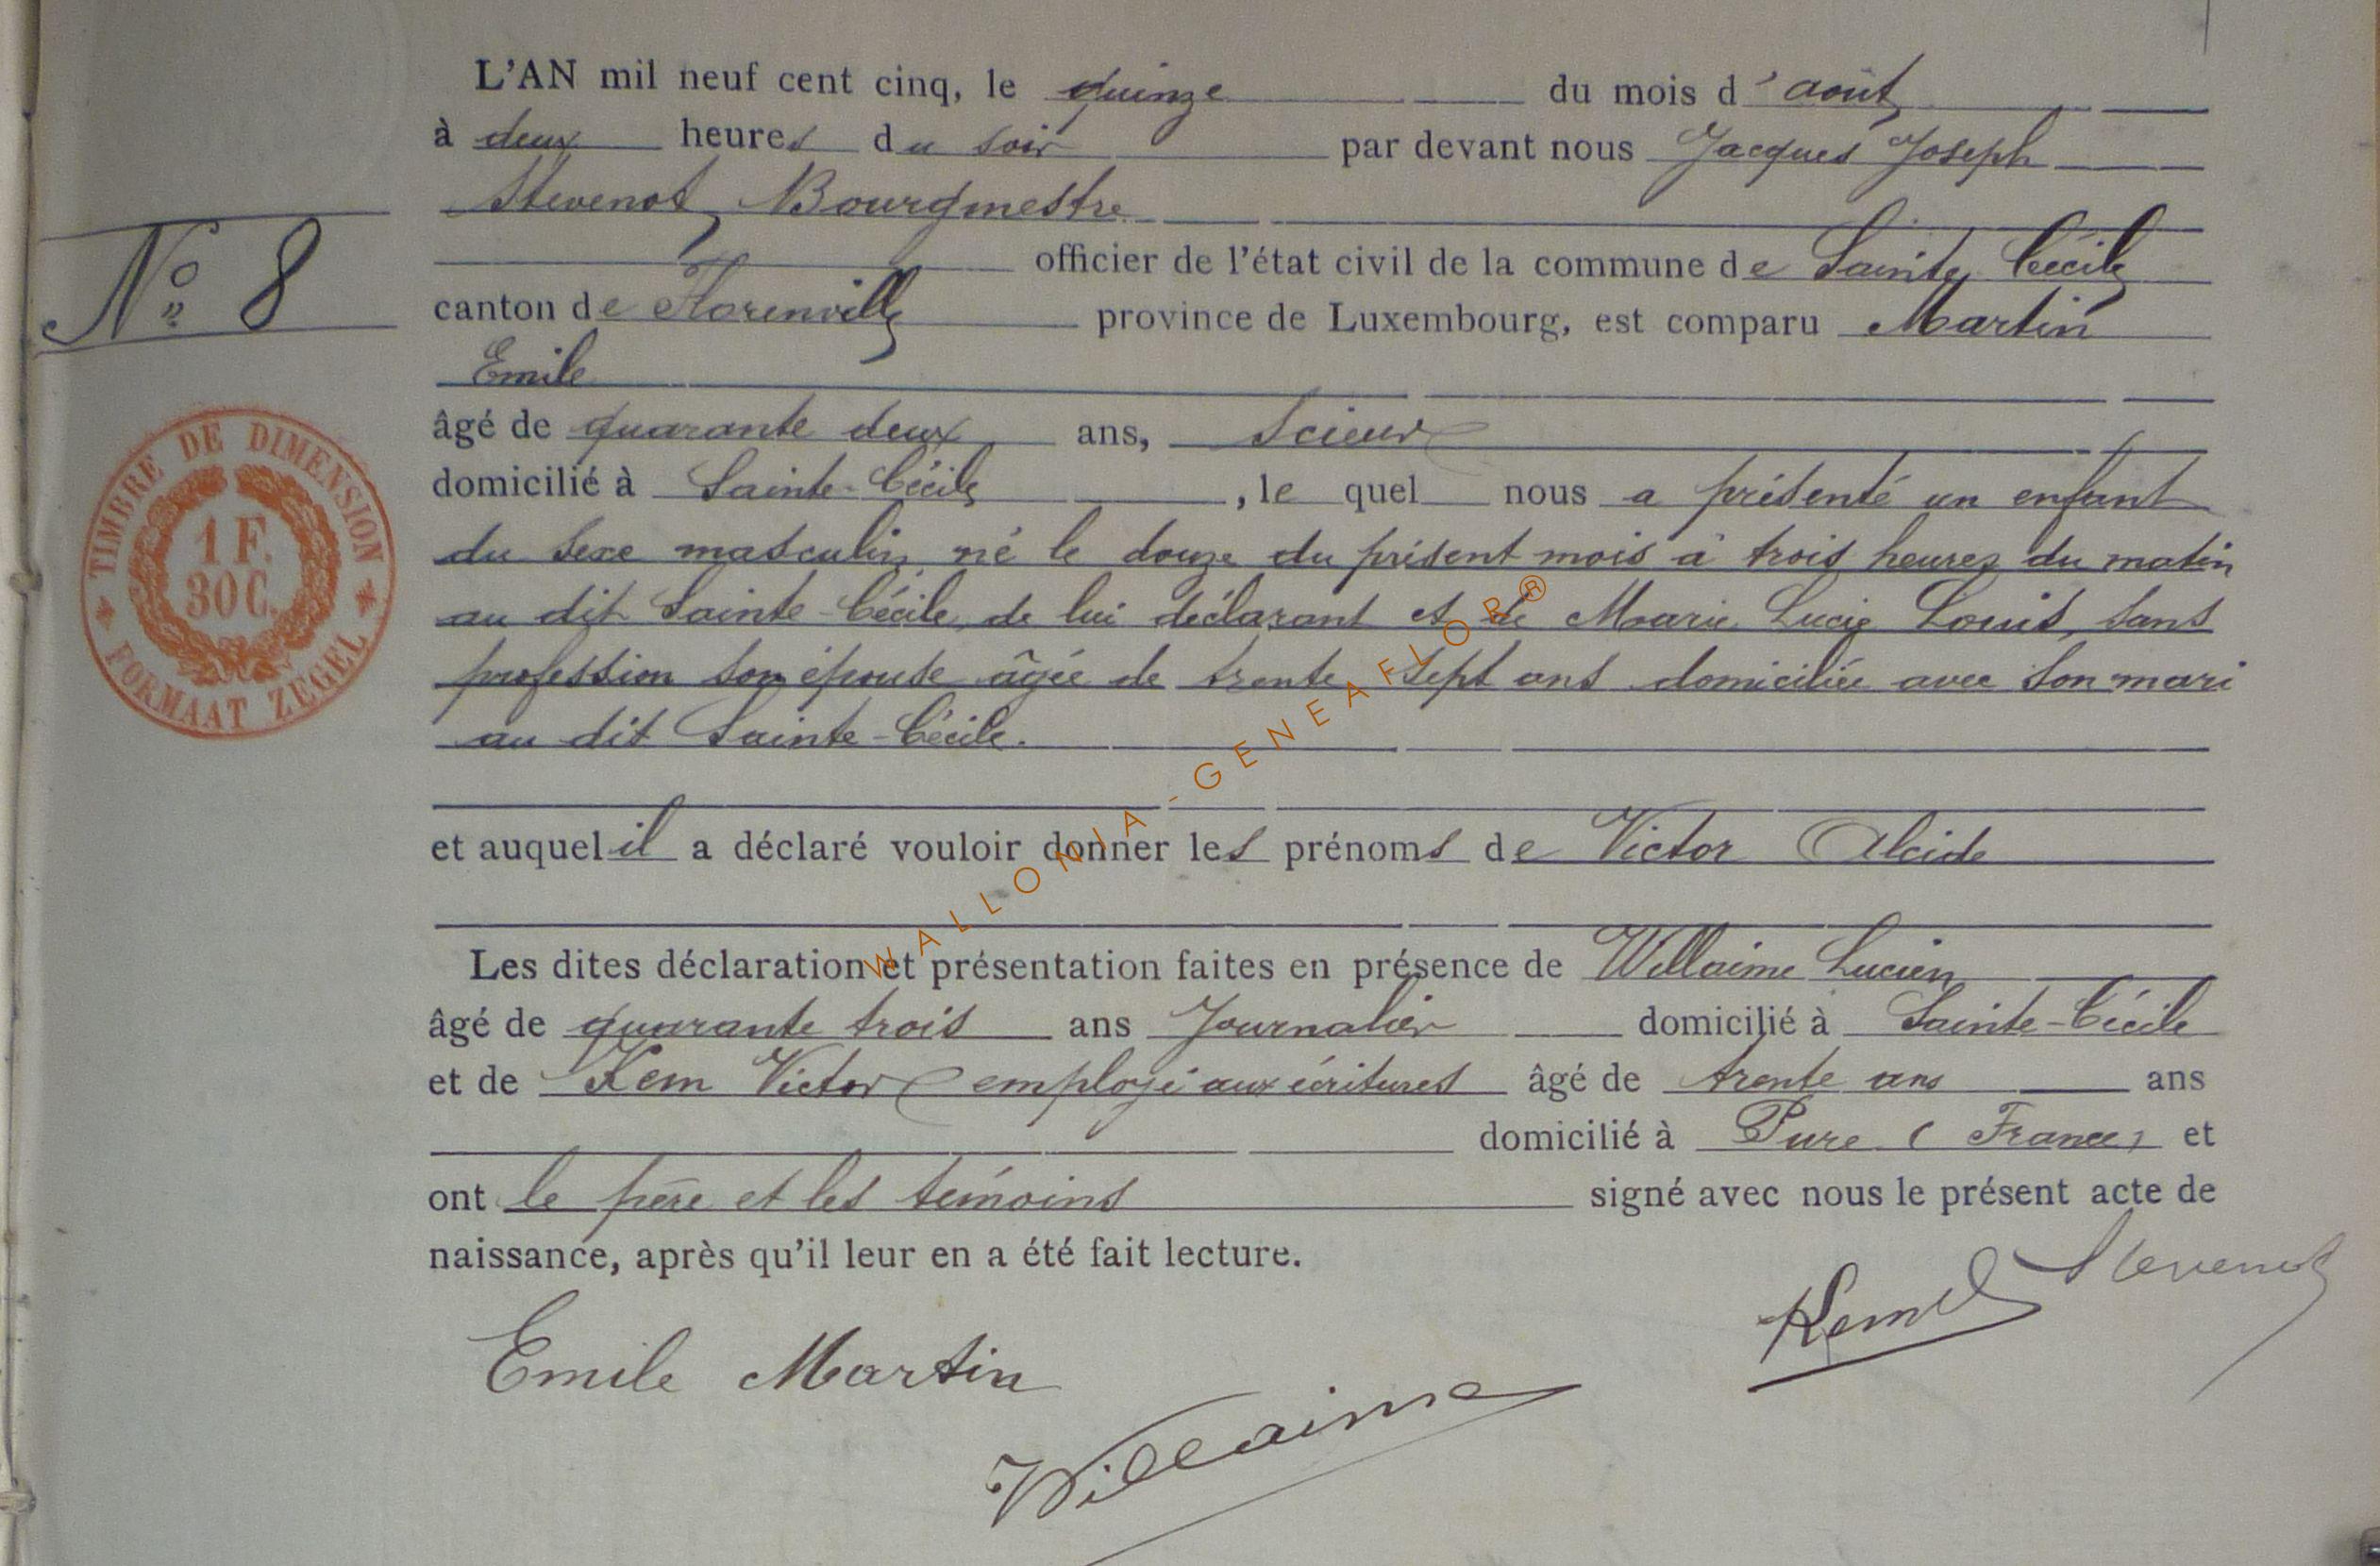 L'AN mil neuf cent cinq, le quinze du mois d'août
à deux heures du soir par devant nous Jacques Joseph
Stevenot, Bourgmestre
officier de l'état civil de la commune de Sainte Cécile
N° 8
canton de Florenville province de Luxembourg, est comparu Martin
Emile
âgé de quarante deux ans, Scieur
domicilié à Sainte-Cécile, le quel nous a présenté un enfant
du sexe masculin, né le douze du présent mois à trois heures du matin
au dit Sainte-Cécile, de lui déclarant et de Marie Lucie Louis, sans
profession son épouse âgée de trente sept ans domiciliée avec son mari
au dit Sainte-Cécile.
et auquel il a déclaré vouloir donner les prénoms de Victor Alcide
Les dites déclaration et présentation faites en présence de Willaime Lucien
âgé de quarante trois ans Journalier domicilié à Sainte-Cécile
et de Kem Victor employé aux écritures âgé de trente ans ans
domicilié à Pure (France) et
ont le père et les témoins signé avec nous le présent acte de
naissance, après qu'il leur en a été fait lecture.
Emile Martin
Willaime
Kem
Stevenot
TIMBRE DE DIMENSION
1 F.
30 C.
FORMAAT ZEGEL
WALLONIA-GENEAFLOR®